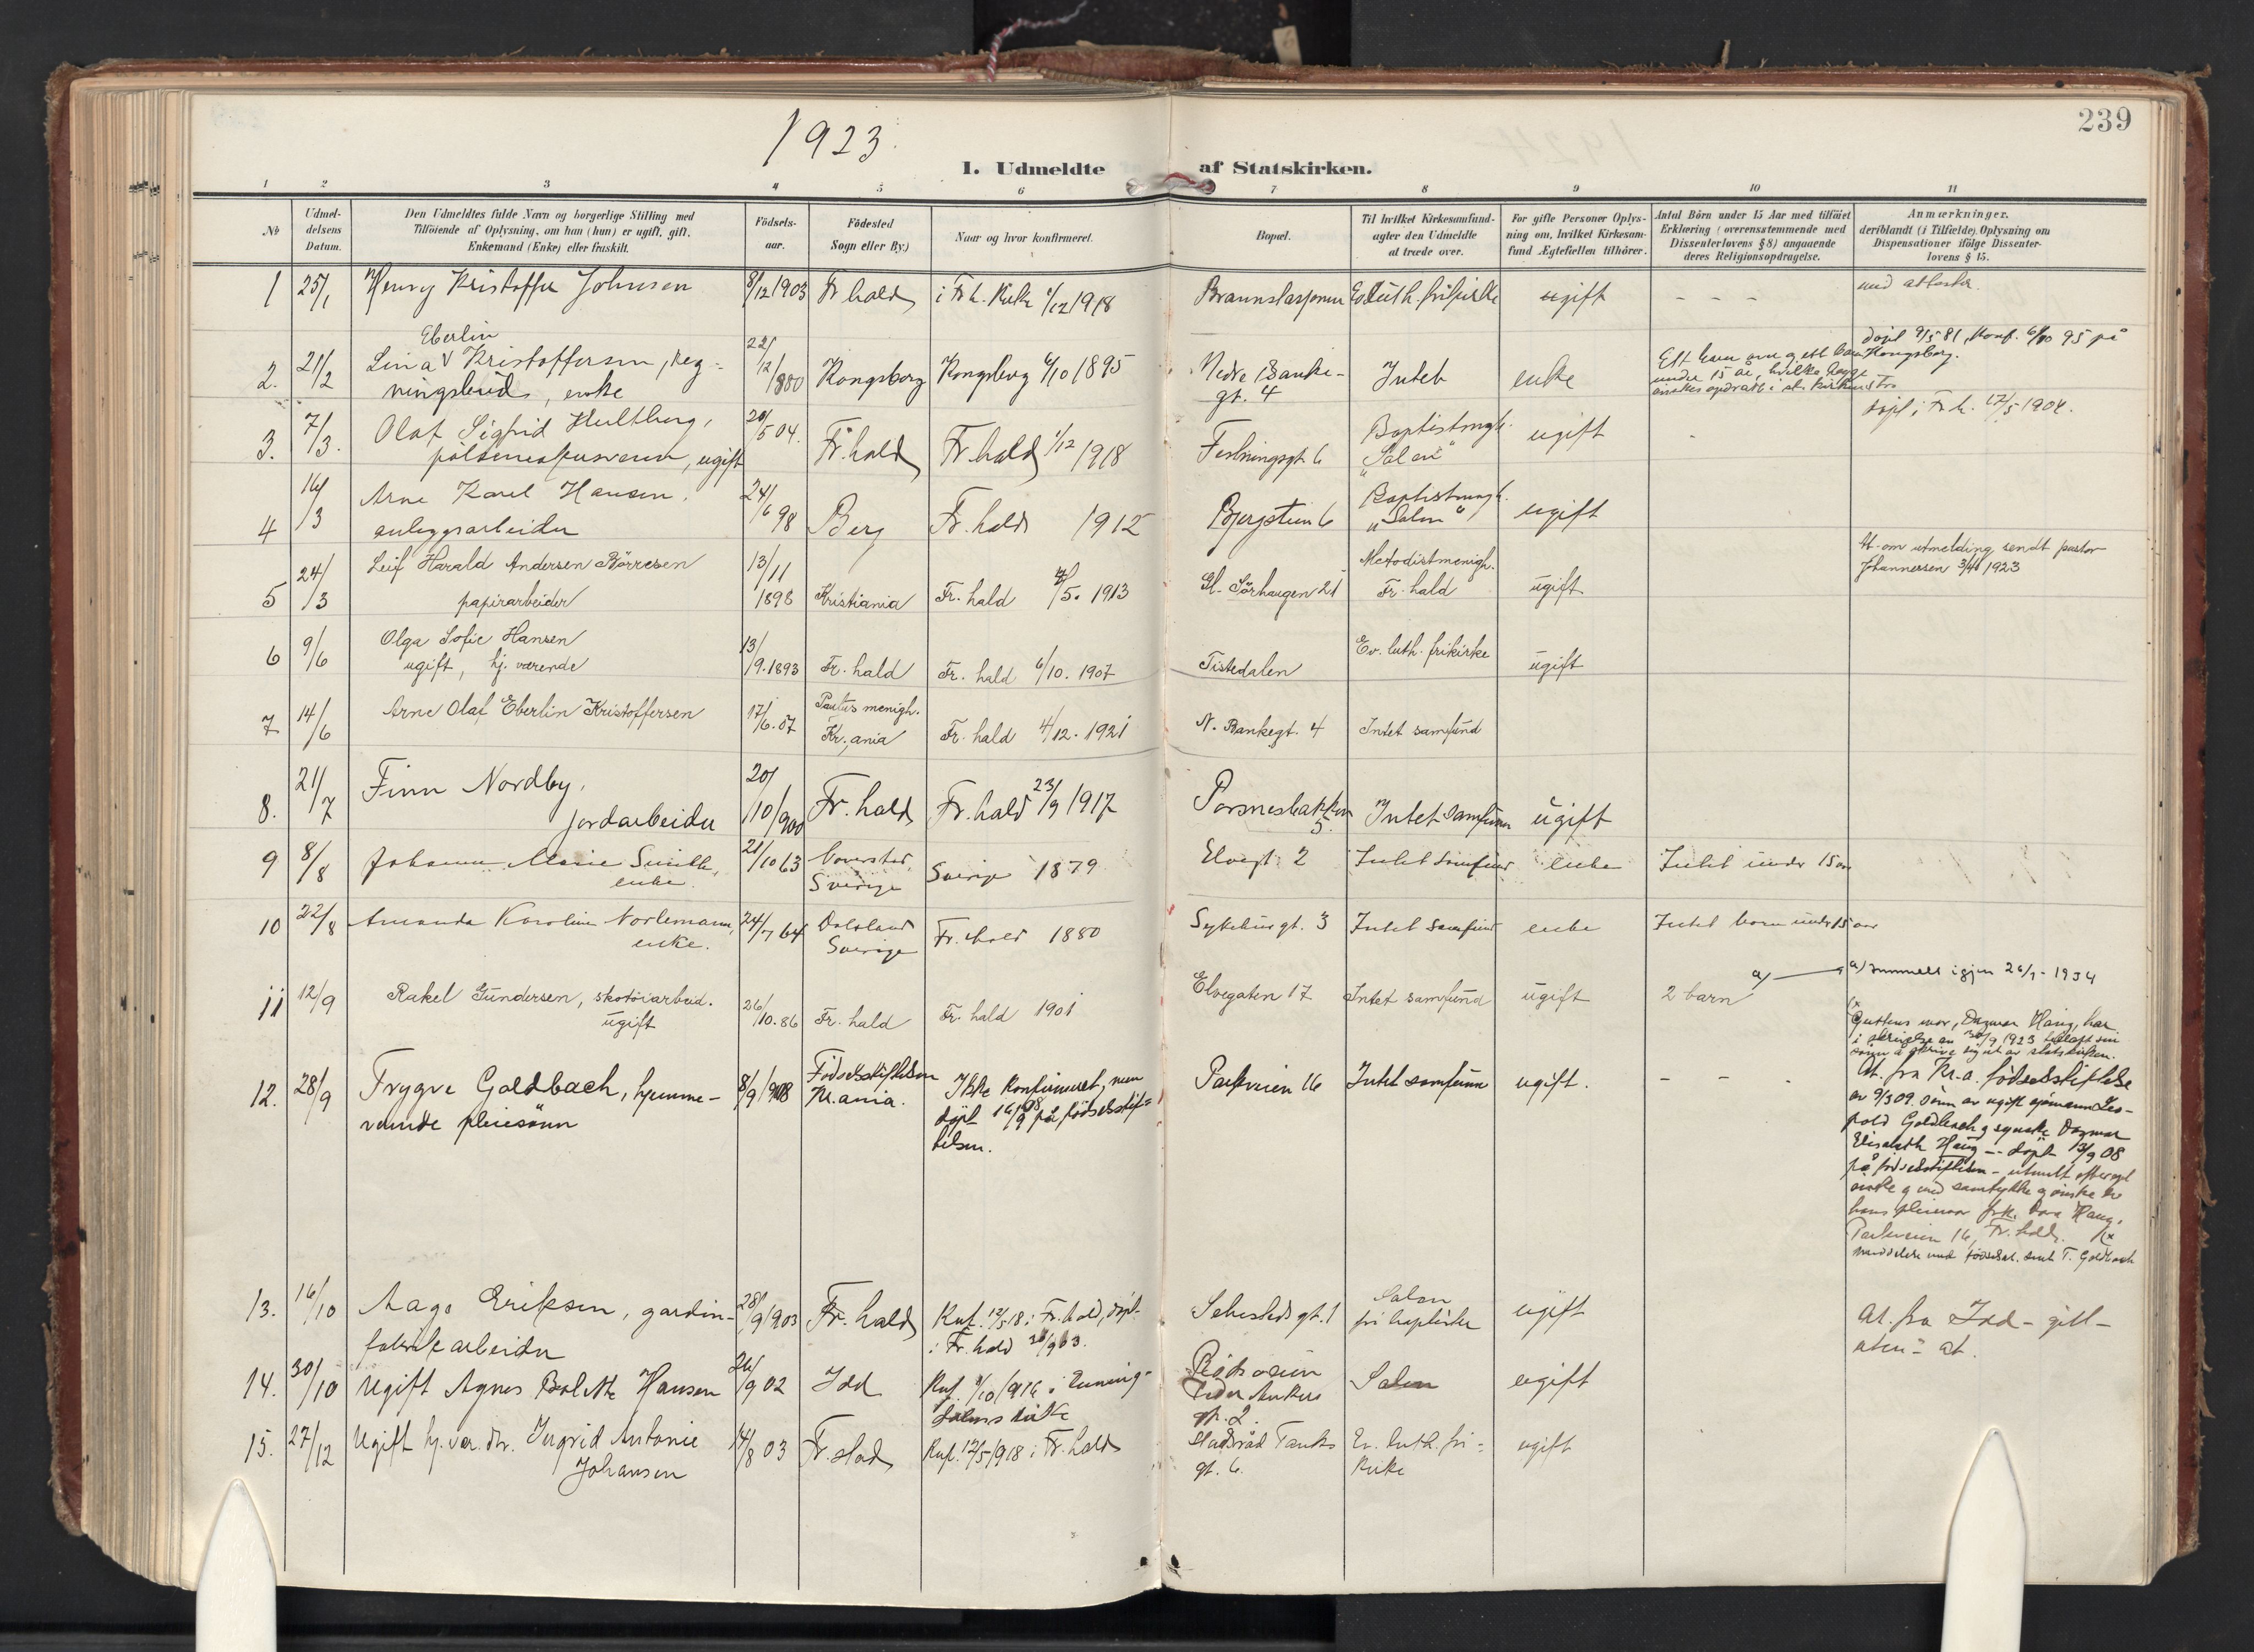 239
1923.
I. Udmeldte af Statskirken.
1 2 3 4 5 6 7 8 9 10 11
No
Udmel-
delsens
Datum.
Den Udmeldtes fulde Navn og borgerlige Stilling med
Tilföiende af Oplysning, om han (hun) er ugift, gift,
Enkemand (Enke) eller fraskilt.
Födsels-
aar.
Födested
Sogn eller By.)
Naar og hvor konfirmeret.
Bopæl.
Til hvilket Kirkesamfund-
agter den Udmeldte
at træde over.
For gifte Personer Oplys-
ning om, hvilket Kirkesam-
fund Ægtefællen tilhörer.
Antal Börn under 15 Aar med tilföiet
Erklæring (overensstemmende med
Dissenterlovens § 8) angaaende
deres Religionsopdragelse.
Anmærkninger.
deriblandt (i Tilfælde) Oplysning om
Dispensationer ifölge Dissenter-
lovens § 15.
1 25/1 Henry Kristoffer Johnsen 8/12 1903 Fr.hald i Fr.h. Kirke 1/12 1918 Ev. luth. frikirke ugift - - -
med attester.
Eberlin
2. 21/2 Lina V Kristoffersen, reg-
ningsbud, enke 22/12/1880 Kongsberg Kongsberg 6/10 1895 Nedre Banke-
gt. 4 Intet enke
under 15 år, hvilke begge
döpt 9/5 81, konf. 6/10 95 på
Kongsberg.
3. 7/3. Olaf Sigfrid Hultberg,
ugift 20/5 04. Fr.hald Fr.hald 1/12 1918 Festningsgt. 6 Baptistmgh.
"Salem" ugift
döpt i Fr.h. 17/5 1904.
4 16/3 Arne Karel Hansen,
anleggsarbeider 24/6 98 Berg Fr.hald 1912 Bjergstien 6 Baptistmgh.
"Salem" ugift
5 24/3 Leif Harald Andersen Börresen
papirarbeider 13/11 1898 Kristiania Fr. hald /5. 1913 Gl. Sörhaugen 21 Metodistmenigh.
Fr. hald ugift
At. om utmelding sendt pastor
Johannessen 3/4 1923
6 9/6 Olga Sofie Hansen
ugift, hj. værende 13/9.1893 Fr. hald Fr. hald 6/10. 1907 Tistedalen Ev. luth. frikirke ugift
7 14/6 Arne Olaf Eberlin Kristoffersen 17/6.07 Paulus menigh.
Kr.ania Fr. hald 4/12. 1921 N. Bankegt. 4 Intet samfund
8. 21/7 Finn Nordby,
jordarbeider 20/10/900 Fr.hald Fr.hald 23/9 1917 5. Intet samfunn ugift
9 8/8 Johanne Marie Smith,
enke. 21/10 63
Sverige Sverige 1879 Elvegt. 2 Intet Samfund enke Intet under 15 aar
10 22/8 Amanda Karoline Norlemann,
enke. 24/7 64 Dalsland
Sverige Fr. hald 1880 Sykehusgt. 3 Intet Samfund enke Intet barn under 15 aar
11 12/9 Rakel Gundersen, skotöiarbeid.
ugift 26/10.86 Fr. hald Fr. hald 1901 Elvegaten 17 Intet samfund ugift 2 barn a)
a) innmeldt igjen 26/1 - 1934
12. 28/9 Trygve Goldbach, hjemme-
værende pleiesönn 8/9/1908 Födselsstiftelsen
Kr.ania. Ikke konfirmert, men
döpt 14/9 08 på födselsstif-
telsen. Parkveien 16 Intet samfunn ugift. - -
Guttens mor, Dagmar Haug, har
i skrivelse av 30/9 1923 tillatt sin
sönn å skrive sig ut av statskirken.
At. fra Kr.a. födselsstiftelse
av 9/3 09. Sönn av ugift sjömann Leo-
pold Goldbach og syerske Dagmar
Elisabeth Haug -- döpt 13/9 08
på födselsstiftelsen - utmeldt efter eget
önske og med samtykke og önske av
hans pleiemor frk. Haug,
Parkveien 16, Fr.hald.
13. 16/10 Aage Eriksen, gardin-
fabrikkarbeider 28/9 1903 Fr. hald Knf. 12/5 18 i Fr.hald, döpt.
i Fr.hald Sehestedsgt. 1 Salem
ugift
At. fra Idd -
14. 30/10 Ugift Agnes Bolette Hansen 26/9 02 Idd
Ankers
gt. 2. Salem ugift
15. 27/12 Ugift hj.vær. dtr. Ingrid Antonie
Johansen 14/8 03 Fr.stad Knf. 12/5 1918 i Fr.hald Statsråd Tanks
gt. 6. Ev. luth. fri-
kirke ugift